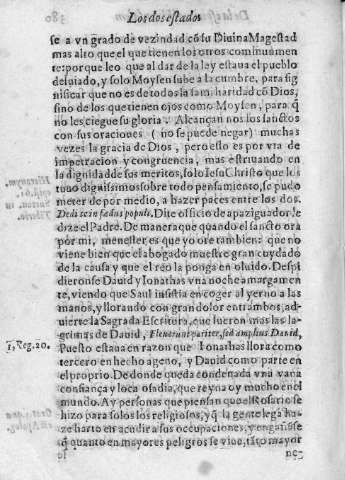 Los dos estados
se a vn grado de vezindad cõ su Diuina Magestad
mas alto que el que tienen los otros comunmen-
te: porque leo que al dar de la ley estaua el pueblo
desuiado, y solo Moysen sube a la cumbre, para sig
nificar que no es de todos la familiaridad cõ Dios,
sino de los que tienen ojos como Moysen, para q̃
no les ciegue su gloria. Alcançan nos los sanctos
con sus oraciones ( no se puede negar) muchas
vezes la gracia de Dios, pero esto es por via de
impetracion y congruencia, mas estriuando en
la dignidad de sus meritos, solo Iesu Christo que los
tuuo dignissimos sobre todo pensamiento, se pudo
meter de por medio, a hazer paces entre los dos.
Dedi te in fœdus populi, Dite officio de apaziguador le
dize el Padre. De manera que quando el sancto ora
por mi, menester es que yo ore tambien: que no
viene bien que el abogado muestre gran cuydado
de la causa y que el reo la ponga en oluido. Despi
dieronse Dauid y Ionathas vna noche amargamen
te, viendo que Saul insistia en coger al yerno a las
manos, y llorando con gran dolor entrambos, ad-
uierte la Sagrada Escritura, que fueron mas las la-
grimas de Dauid, Fleuerunt pariter, sed amplius Dauid,
1. Reg. 20.
Puesto estaua en razon que Ionathas llora como
tercero en hecho ageno, y Dauid como parte en
el proprio. De donde queda condenada vna vana
confiança y loca osadia, que reyna oy mucho en el
mundo. Ay personas que piensan que el Rosario se
hizo para solos los religiosos, y q̃ la gente lega ha-
ze harto en acudir a sus occupaciones, y engañãse
q̃ quanto en mayores peligros se viue, tãto mayor